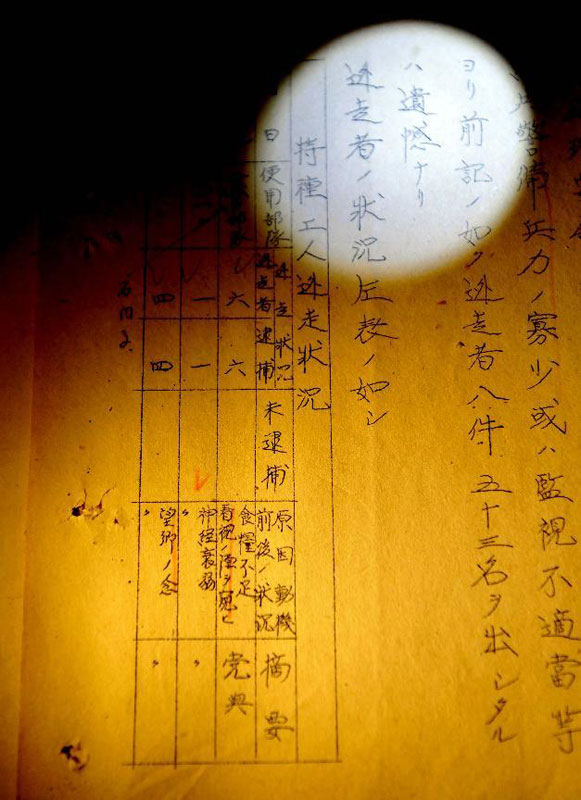 警備兵力ノ寡少或ハ監視不適當等
ヨリ前記ノ如ク逃走者八件五十三名ヲ出シタル
ハ遺憾ナリ
逃走者ノ狀況左表ノ如シ
特種工人逃走狀況
日
使用部隊
逃走狀況
逃走者
逮捕
未逮捕
原因動機
前後ノ狀況
摘要
六
六
食糧不足
看視ノ隙ヲ窺ヒ
党與
一
一
〃
神経衰弱
〃
四
四
望郷ノ念
〃
〃